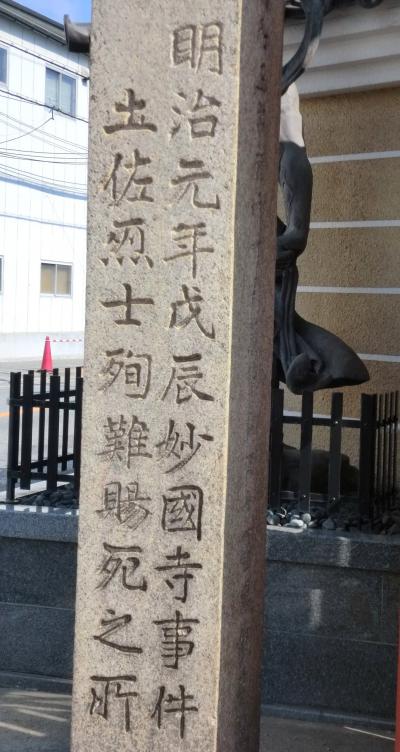 明治元年戊辰妙國寺事件
土佐烈士殉難賜死之所